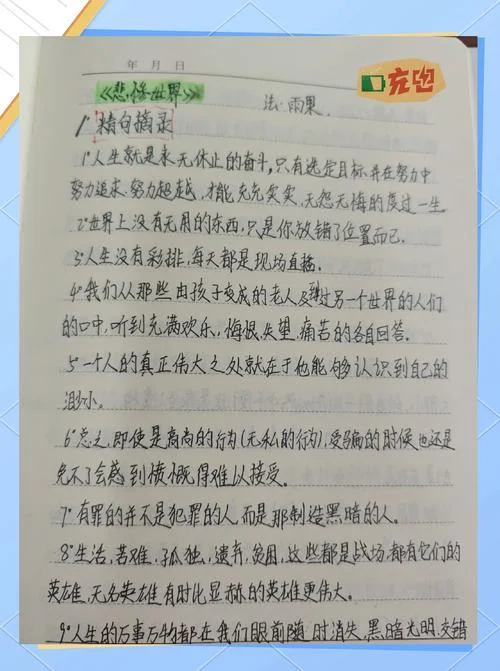 年 月 日
充电
《悲惨世界》 法·雨果.
1° 精句摘录
1°人生就是永无休止的奋斗,只有选定目标并在努力中
努力追求,努力超越,才能充充实实,无怨无悔的度过一生.
2°世界上没有无用的东西,只是你放错了位置而已.
3°人生没有彩排,每天都是现场直播.
4°我们从那些由孩子变成的老人及到过另一个世界的人们
的口中,听到充满欢乐,悔恨,失望,痛苦的各自回答.
5°一个人的真正伟大之处就在于他能够认识到自己的
渺小。
6°总之,即使是高尚的行为(无私的行为),受骗的时候也还是
免不了会感到愤慨得难以接受。
7°有罪的并不是犯罪的人,而是那制造黑暗的人。
8°生活,苦难,孤独,遗弃,贫困,这些都是战场,都有它们的
英雄,无名英雄有时比显赫的英雄更伟大。
9°人生的万事万物都在我们眼前随时消失,黑暗光明,交错